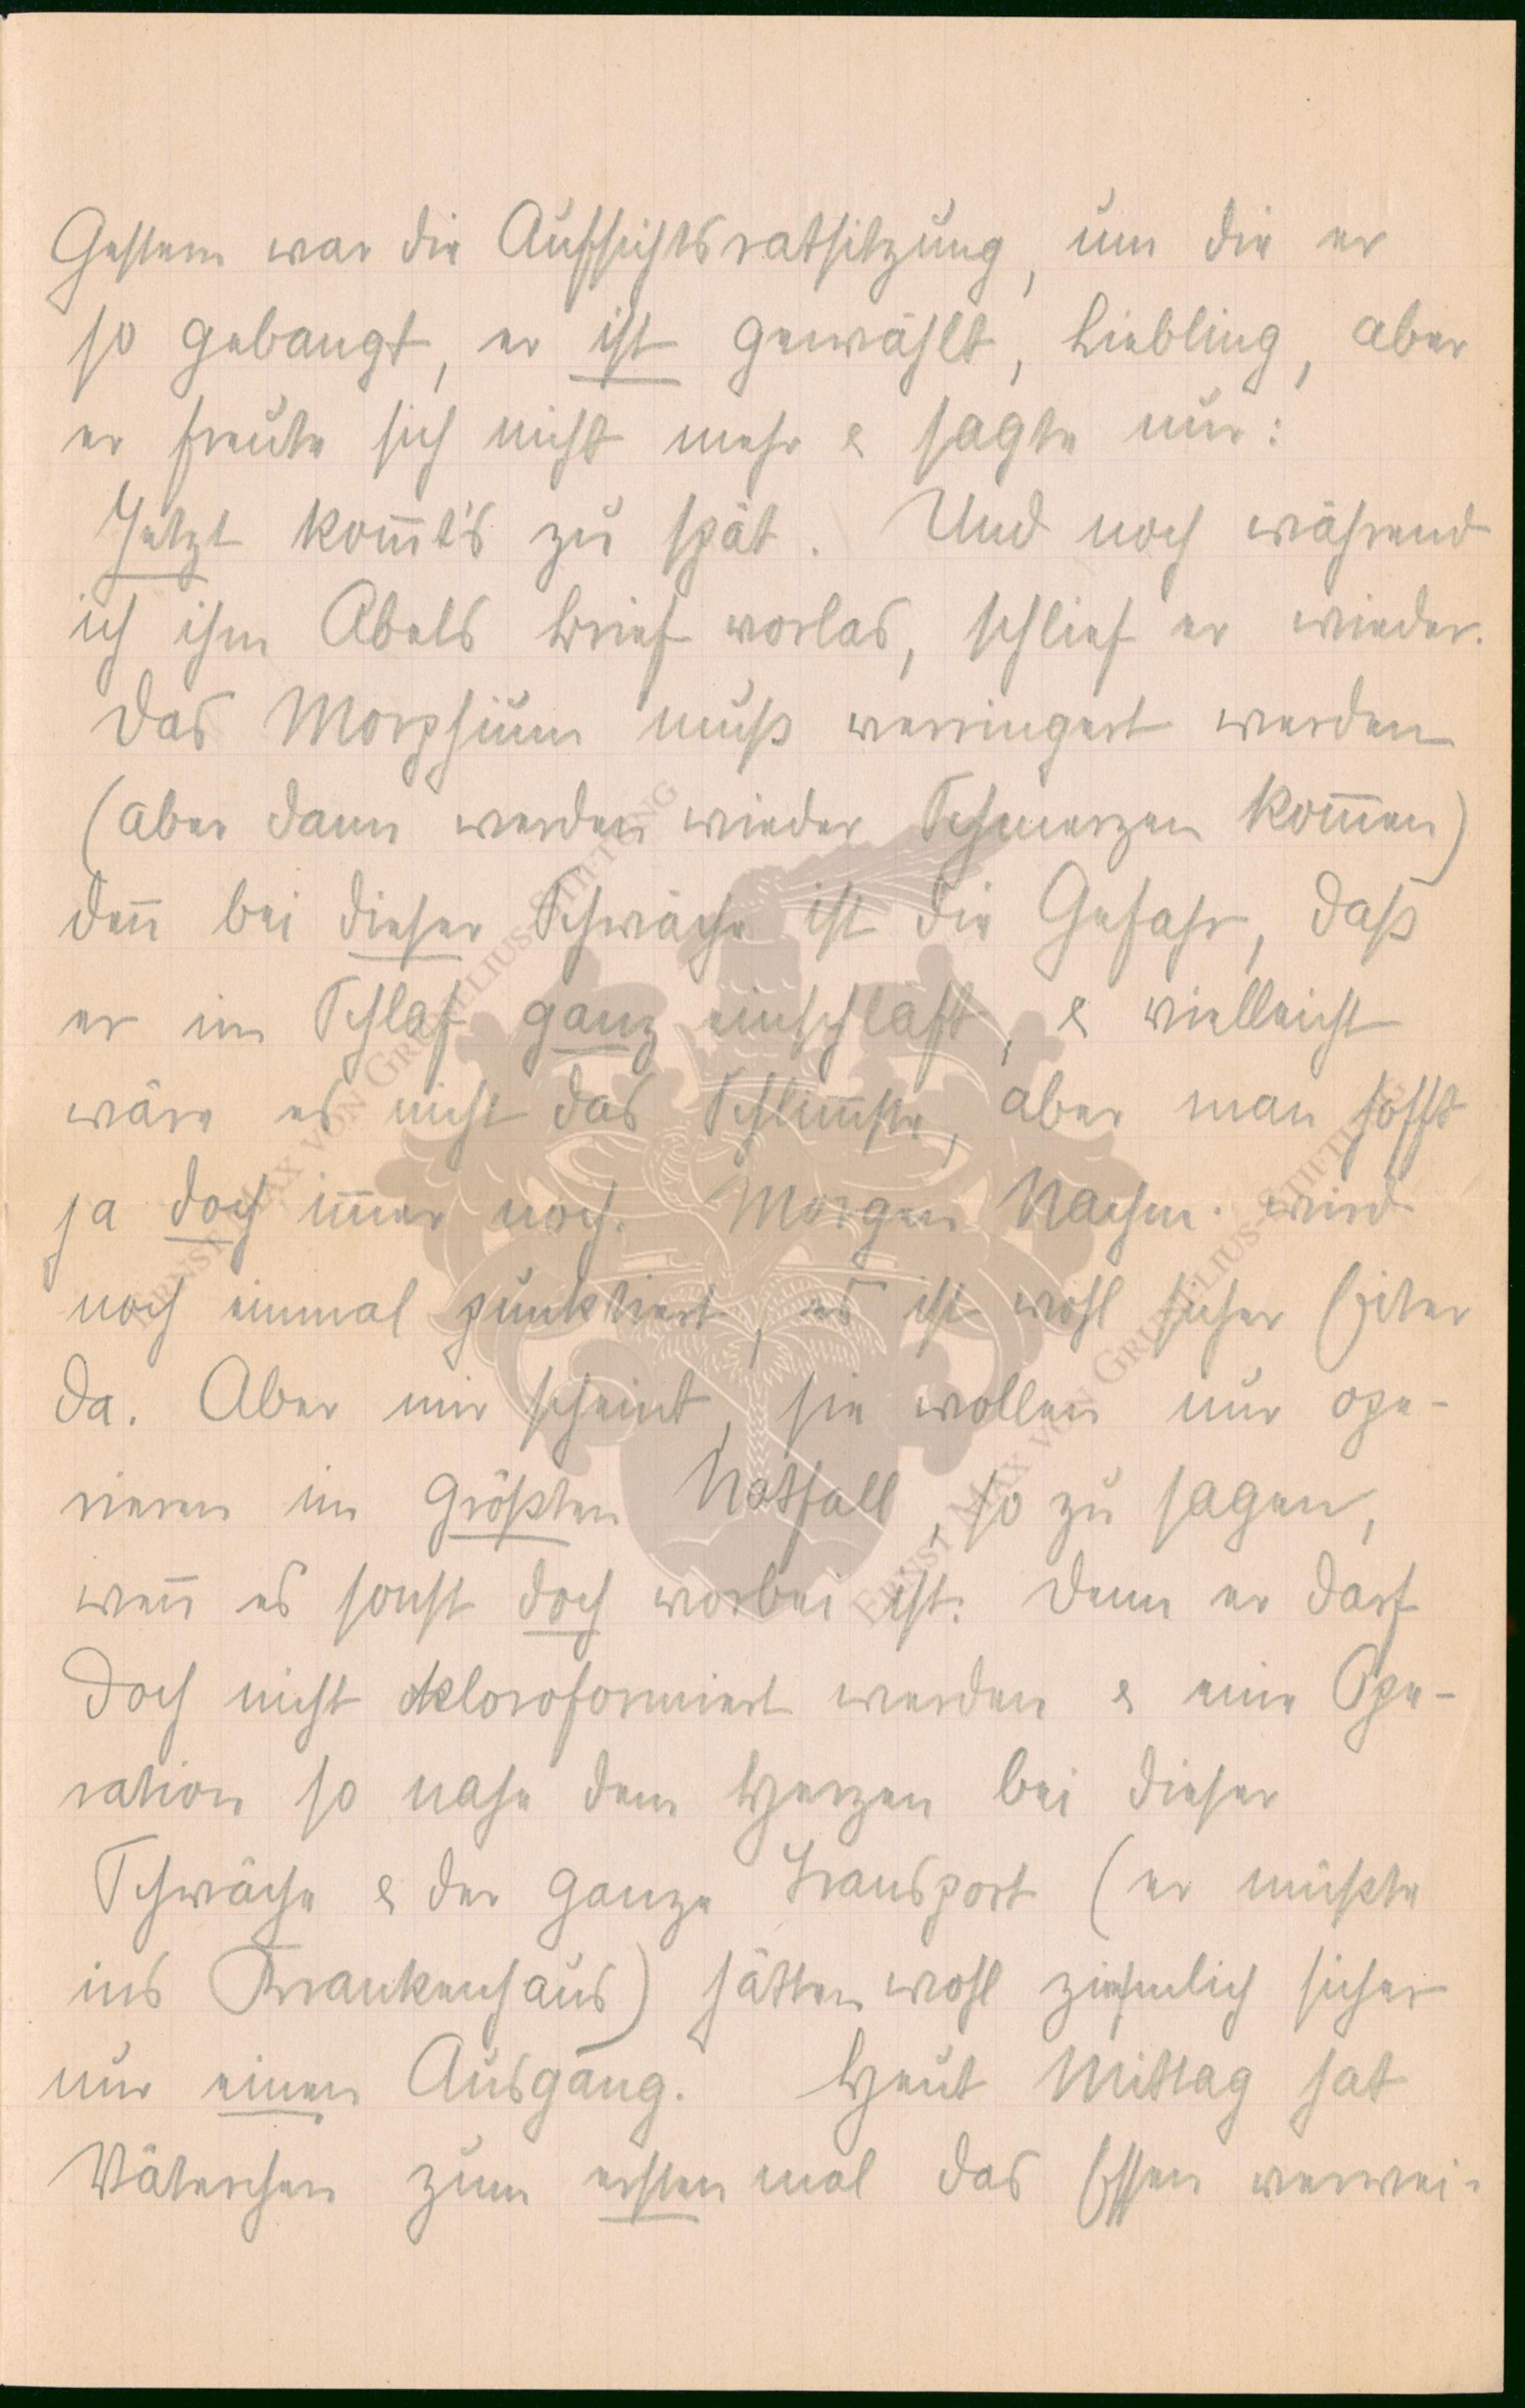 Gestern war die Aufsichtsratsitzung, um die er
so gebangt, er ist gewählt, Liebling, aber
er freute sich nicht mehr & sagte nur:
Jetzt kom̄t's zu spät. Und noch während
ich ihm Abels Brief vorlas, schlief er wieder.
Das Morphium muß verringert werden
(aber dann werden wieder Schmerzen kom̄en)
den̄ bei dieser Schwäche ist die Gefahr, daß
er im Schlaf ganz einschläft, & vielleicht
wäre es nicht das Schlim̄ste, aber man hofft
ja doch im̄er noch. Morgen Nachm. wird
noch einmal punktiert, es ist wohl sicher Eiter
da. Aber mir scheint, sie wollen nur ope-
rieren im größten Notfall, so zu sagen,
wen̄ es sonst doch vorbei ist. Denn er darf
doch nicht chloroformiert werden & eine Ope-
ration so nahe dem Herzen bei dieser
Schwäche & der ganze Transport (er müßte
ins Krankenhaus) hätten wohl ziemlich sicher
nur einen Ausgang. Heut Mittag hat
Väterchen zum ersten mal das Essen verwei-
ERNST MAX VON GRUNELIUS-STIFTUNG
ERNST MAX VON GRUNELIUS-STIFTUNG